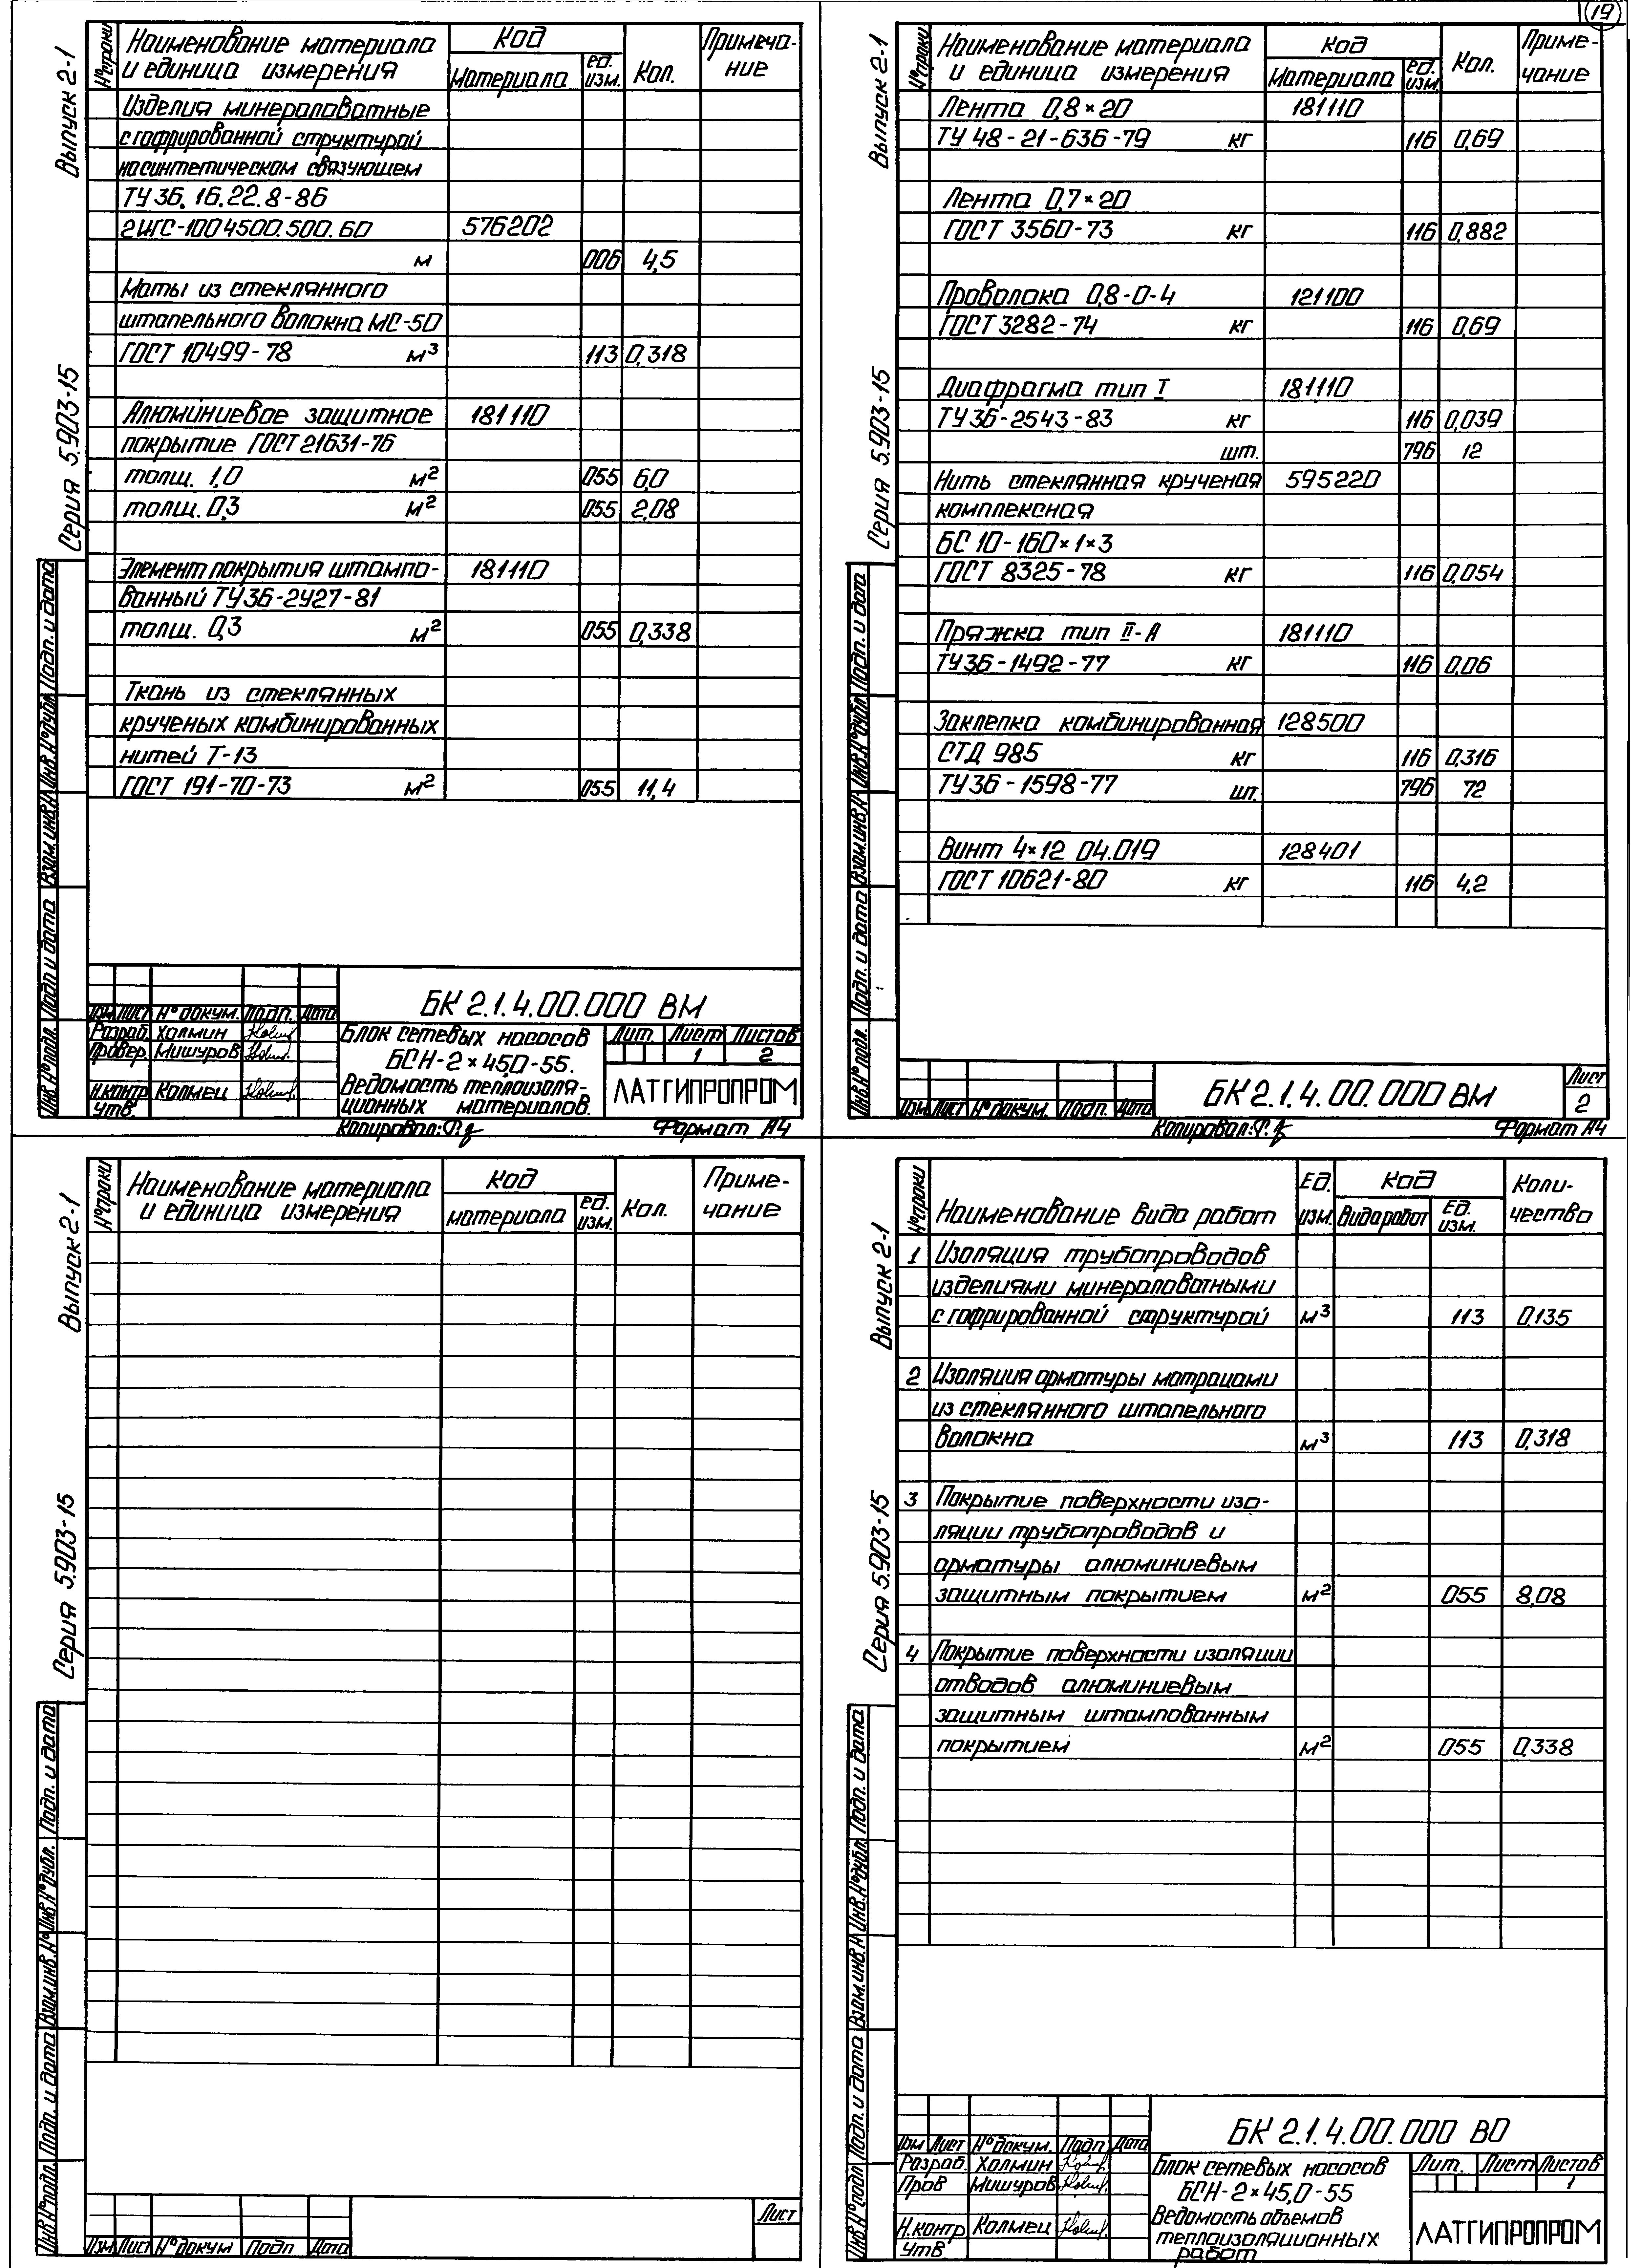 19
Выпуск 2-1
Серия 5.903-15
№ строки
Наименование материала
и единица измерения
Код
материала
ед.
изм.
Кол.
Примеча-
ние
Изделия минераловатные
с гофрированной структурой
на синтетическом связующем
ТУ 36.16.22.8-86
2ИГС-100 4500.500.60 576202
м 006 4,5
Маты из стеклянного
штапельного волокна МС-50
ГОСТ 10499-78 м³ 113 0,318
Алюминиевое защитное 181110
покрытие ГОСТ 21631-76
толщ. 1,0 м² 055 6,0
толщ. 0,3 м² 055 2,08
Элемент покрытия штампо- 181110
ванный ТУ 36-2427-81
толщ. 0,3 м² 055 0,338
Ткань из стеклянных
крученых комбинированных
нитей Т-13
ГОСТ 191-70-73 м² 055 11,4
Подп. и дата
Инв.№ дубл.
Взам.инв.№
Подп и дата
Инв.№ подл.
БК 2.1.4.00.000 ВМ
Изм Лист № докум. Подп. Дата
Разраб. Холмин
Провер. Мишуров
Н.контр Колмец
Утв.
Блок сетевых насосов
БСН-2×45,0-55.
Ведомость теплоизоля-
ционных материалов.
Лит. Лист Листов
1 2
ЛАТГИПРОПРОМ
Копировал:
Формат А4
Выпуск 2-1
Серия 5.903-15
№ строки
Наименование материала
и единица измерения
Код
материала
ед.
изм.
Кол.
Приме-
чание
Лента 0,8×20 181110
ТУ 48-21-636-79 кг 116 0,69
Лента 0,7×20
ГОСТ 3560-73 кг 116 0,882
Проволока 0,8-0-4 121100
ГОСТ 3282-74 кг 116 0,69
Диафрагма тип I 181110
ТУ 36-2543-83 кг 116 0,039
шт. 796 12
Нить стеклянная крученая 595220
комплексная
БС 10-160×1×3
ГОСТ 8325-78 кг 116 0,054
Пряжка тип II-А 181110
ТУ 36-1492-77 кг 116 0,06
Заклепка комбинированная 128500
СТД 985 кг 116 0,316
ТУ 36-1598-77 шт. 796 72
Винт 4×12 04.019 128401
ГОСТ 10621-80 кг 116 4,2
Подп. и дата
Инв.№ дубл.
Взам.инв.№
Подп. и дата
Инв.№ подл.
Изм Лист № докум. Подп. Дата
БК 2.1.4.00.000 ВМ
Лист
2
Копировал:
Формат А4
Выпуск 2-1
Серия 5.903-15
№ строки
Наименование материала
и единица измерения
Код
материала
ед.
изм.
Кол.
Приме-
чание
Подп. и дата
Инв.№ дубл.
Взам.инв.№
Подп. и дата
Инв.№ подл.
Изм Лист № докум Подп Дата
Лист
Выпуск 2-1
Серия 5.903-15
№ строки
Наименование вида работ
Ед.
изм.
Код
Вида работ
Ед.
изм.
Коли-
чество
1 Изоляция трубопроводов
изделиями минераловатными
с гофрированной структурой м³ 113 0,135
2 Изоляция арматуры матрацами
из стеклянного штапельного
волокна м³ 113 0,318
3 Покрытие поверхности изо-
ляции трубопроводов и
арматуры алюминиевым
защитным покрытием м² 055 8,08
4 Покрытие поверхности изоляции
отводов алюминиевым
защитным штампованным
покрытием м² 055 0,338
Подп. и дата
Инв.№ дубл.
Взам.инв.№
Подп. и дата
Инв.№ подл
БК 2.1.4.00.000 ВО
Изм Лист № докум. Подп Дата
Разраб. Холмин
Пров Мишуров
Н.контр Колмец
Утв.
Блок сетевых насосов
БСН-2×45,0-55
Ведомость объемов
теплоизоляционных
работ
Лит. Лист Листов
1
ЛАТГИПРОПРОМ